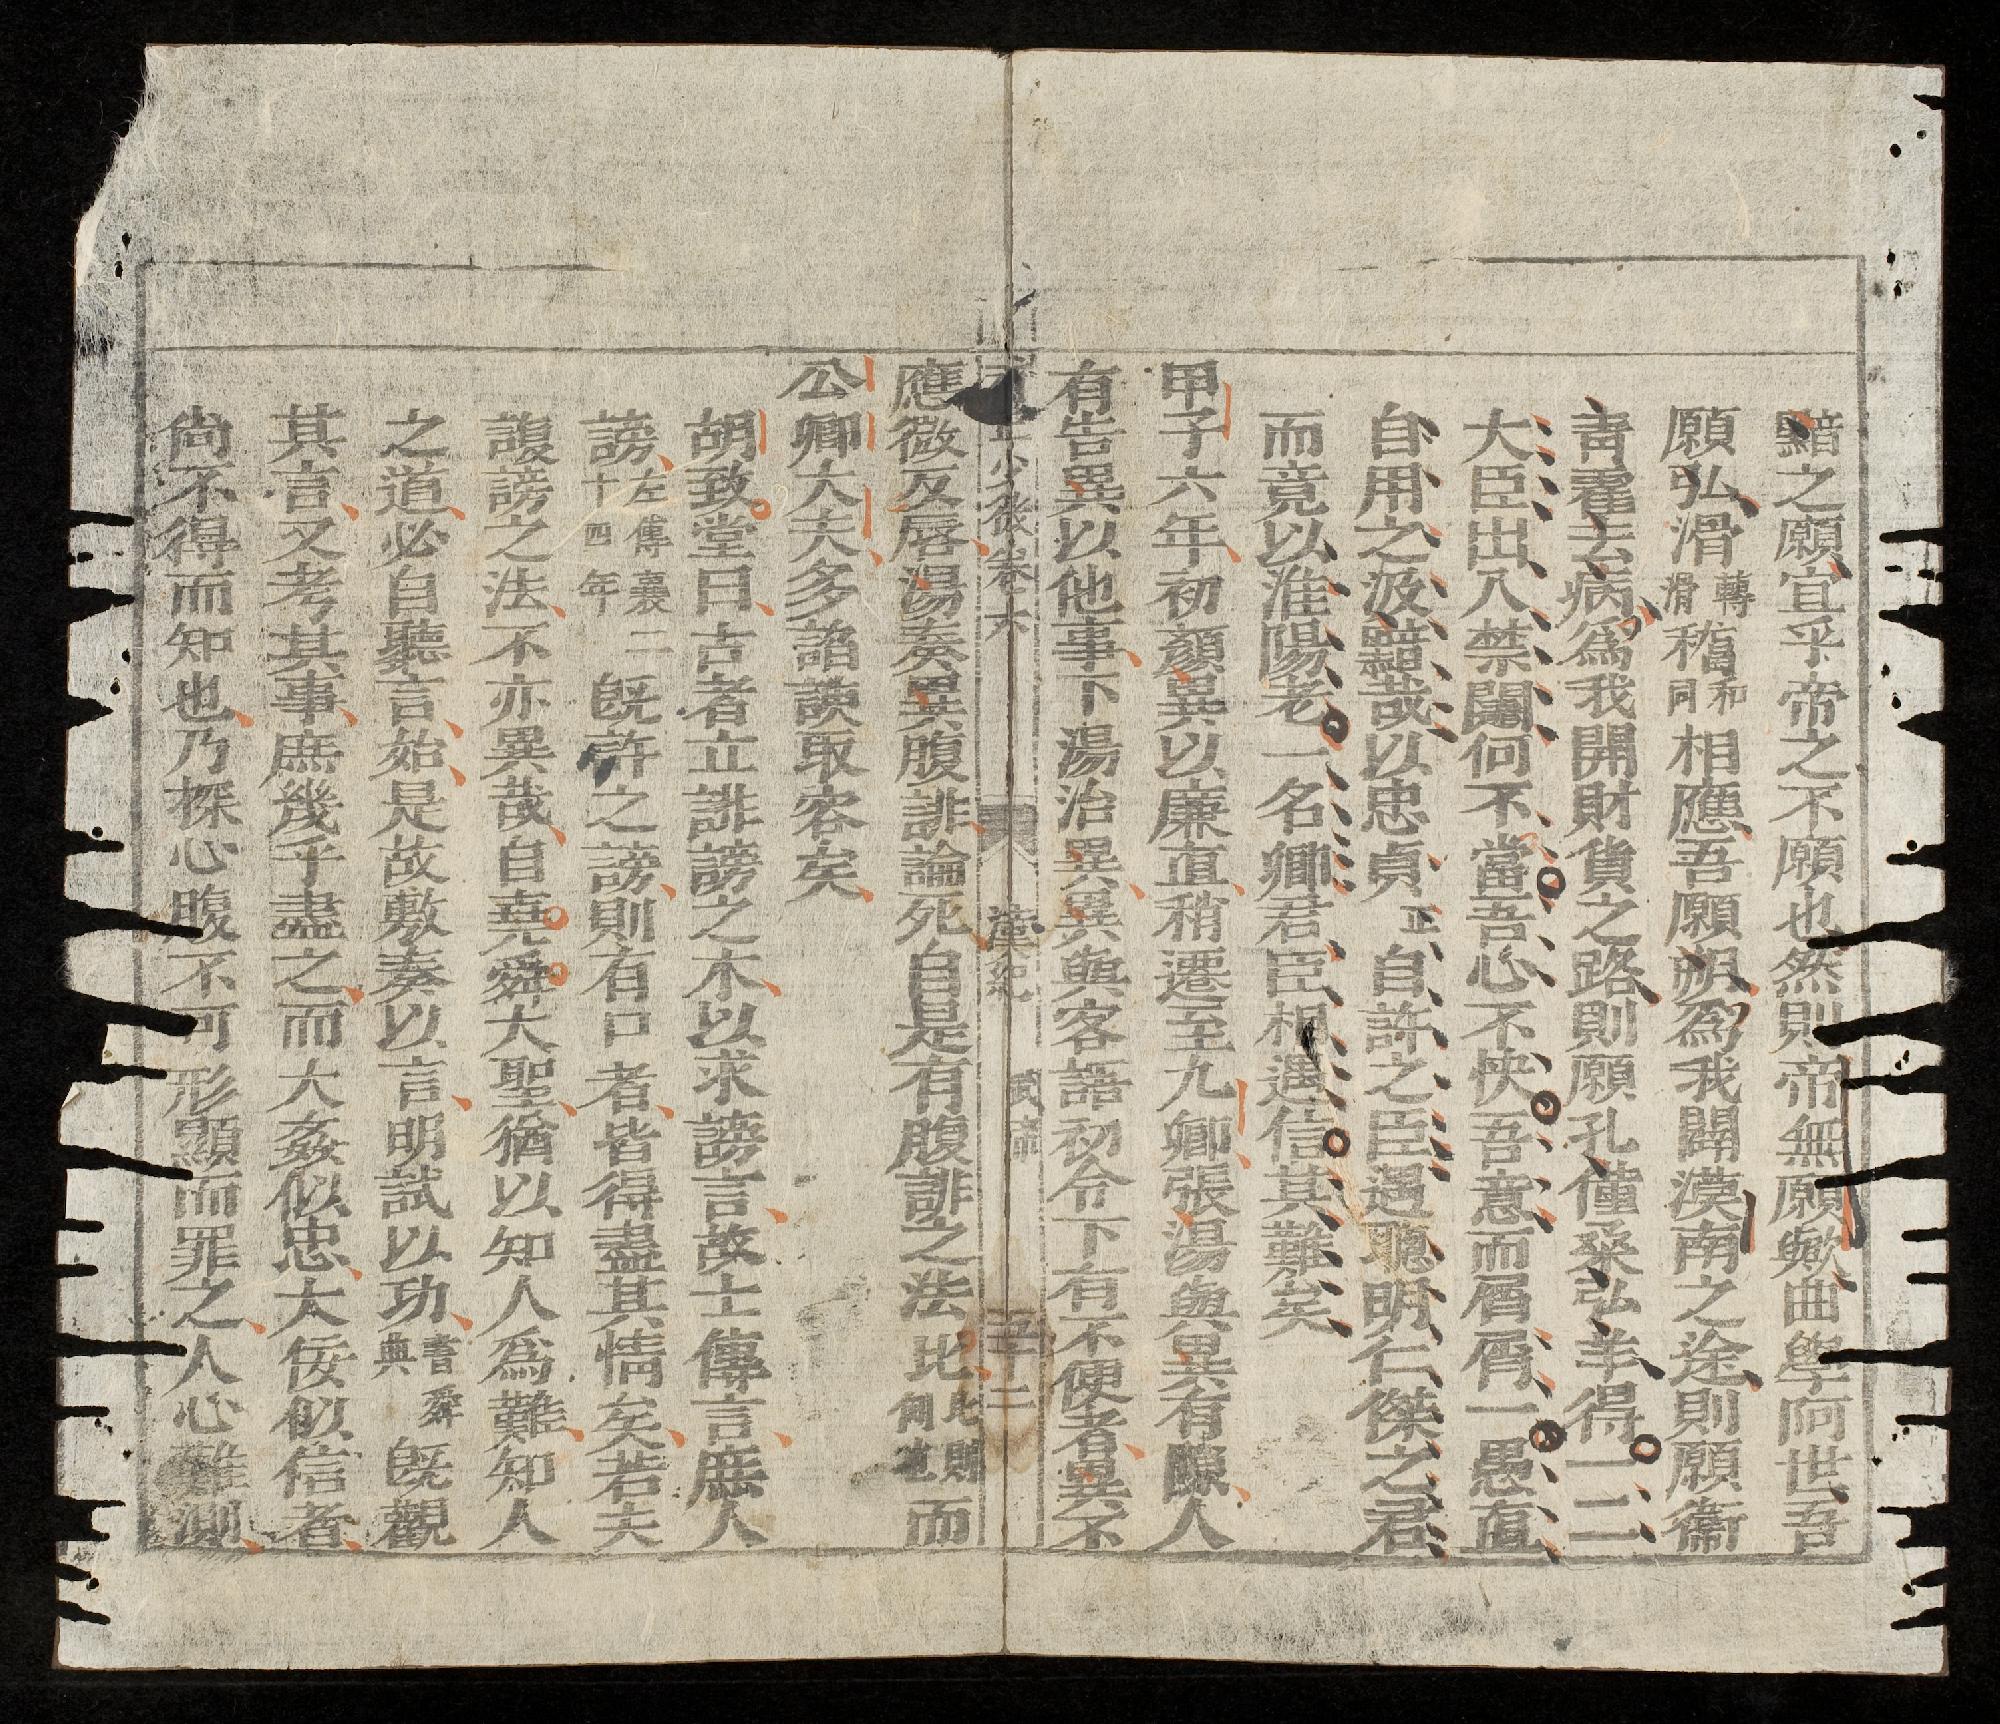 黯之願宜乎帝之不願也然則帝無願歟曲學阿世吾
願弘滑轉滑稽和同相應吾願朔爲我闢漠南之途則願衛
靑霍去病爲我開財貨之路則願孔僅桑弘羊得一二
大臣出入禁闥何不當吾心不快吾意而屑屑一愚直
自用之汲黯哉以忠貞正自許之臣遇聰明仁傑之君
而竟以淮陽老一名卿君臣相遇信其難矣
甲子六年初顏異以廉直稍遷至九卿張湯與異有隙人
有告異以他事下湯治異異與客語初令下有不便者異不
少微卷六 漢紀 武帝 五十二
應微反唇湯奏異腹誹論死自是有腹誹之法比比則例也而
公卿大夫多諂諛取容矣
胡致堂曰古者立誹謗之木以求謗言故士傳言庶人
謗左傳襄二十四年旣許之謗則有口者皆得盡其情矣若夫
腹謗之法不亦異哉自堯舜大聖猶以知人爲難知人
之道必自聽言始是故敷奏以言明試以功書舜典旣觀
其言又考其事庶幾乎盡之而大姦似忠大佞似信者
尙不得而知也乃探心腹不可形顯而罪之人心難測